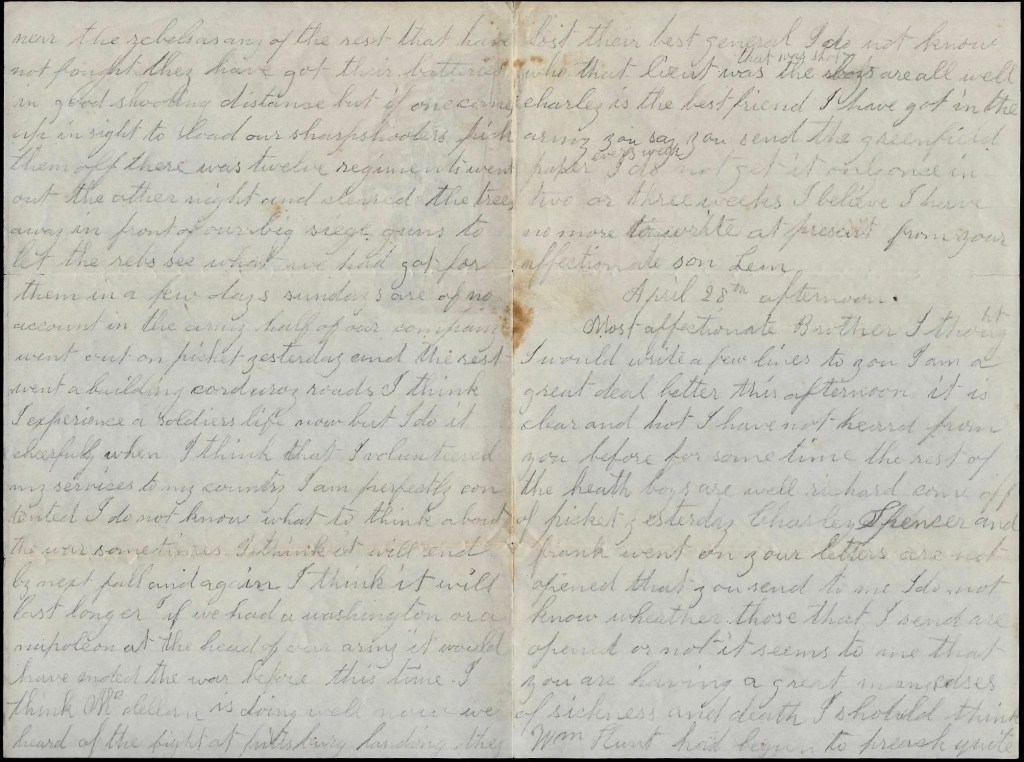 near the rebels as any of the rest that have
not fought they have got their batteries
in good shooting distance but if one come
up in sight to load our sharpshooters pick
them off there was twelve regiments went
out the other night and cleared the trees
away in front of our big siege guns to
let the rebs see what we had got for
them in a few days sundays are of no
account in the army half of our company
went out on picket yesterday and the rest
went a building corduroy roads I think
I experience a soldiers life now but I do it
cheerfully when I think that I volunteered
my services to my country I am perfectly con
tented I do not know what to think about
the war sometimes I think it will end
by next fall and again I think it will
last longer if we had a washington or a
napoleon at the head of our army it would
have ended the war before this time I
think Mc dellan is doing well now we
heard of the fight at pittsburg landing they
lost their best general I do not know
who that lieut was that was shot the boys are all well
charley is the best friend I have got in the
army you say you send the greenfield
paper every week I do not get it only once in
two or three weeks I believe I have
no more to write at present from your
affectionate son Lem
April 28th afternoon.
Most affectionate Brother I thought
I would write a few lines to you I am a
great deal better this afternoon it is
clear and hot I have not heard from
you before for some time the rest of
the heath boys are well richard come off
of picket yesterday Charley Spencer and
frank went on your letters are not
opened that you send to me I do not
know wheather those that I send are
opened or not it seems to me that
you are having a great many cases
of sickness and death I should think
Wm Hunt had begun to preach quite